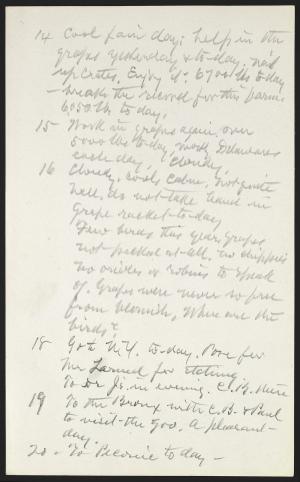 14 Cool fair day; help in the
grapes yesterday & to-day. nail
up crates. Enjoy it. 6700 lbs to-day
— breaks the record for this farm.
6050 lbs to day.
15 Work in grapes again, over
5000 lbs to-day, mostly Delawares
each day, Cloudy,
16 Cloudy, cool, calm, not quite
well, do not take hand in
grape racket to-day
Few birds this year, grapes
not pecked at all, no
no orioles or robins to speak
of. Grapes were never so free
from blemish, Where are the
birds?
18 Go to N.Y. to-day. Pose for
Mr for etching.
To Dr Js in evening. C.B. there
19 To the Bronx with C.B. & Paul
to visit the Zoo. A pleasant
day.
20 - To Peconic to day -